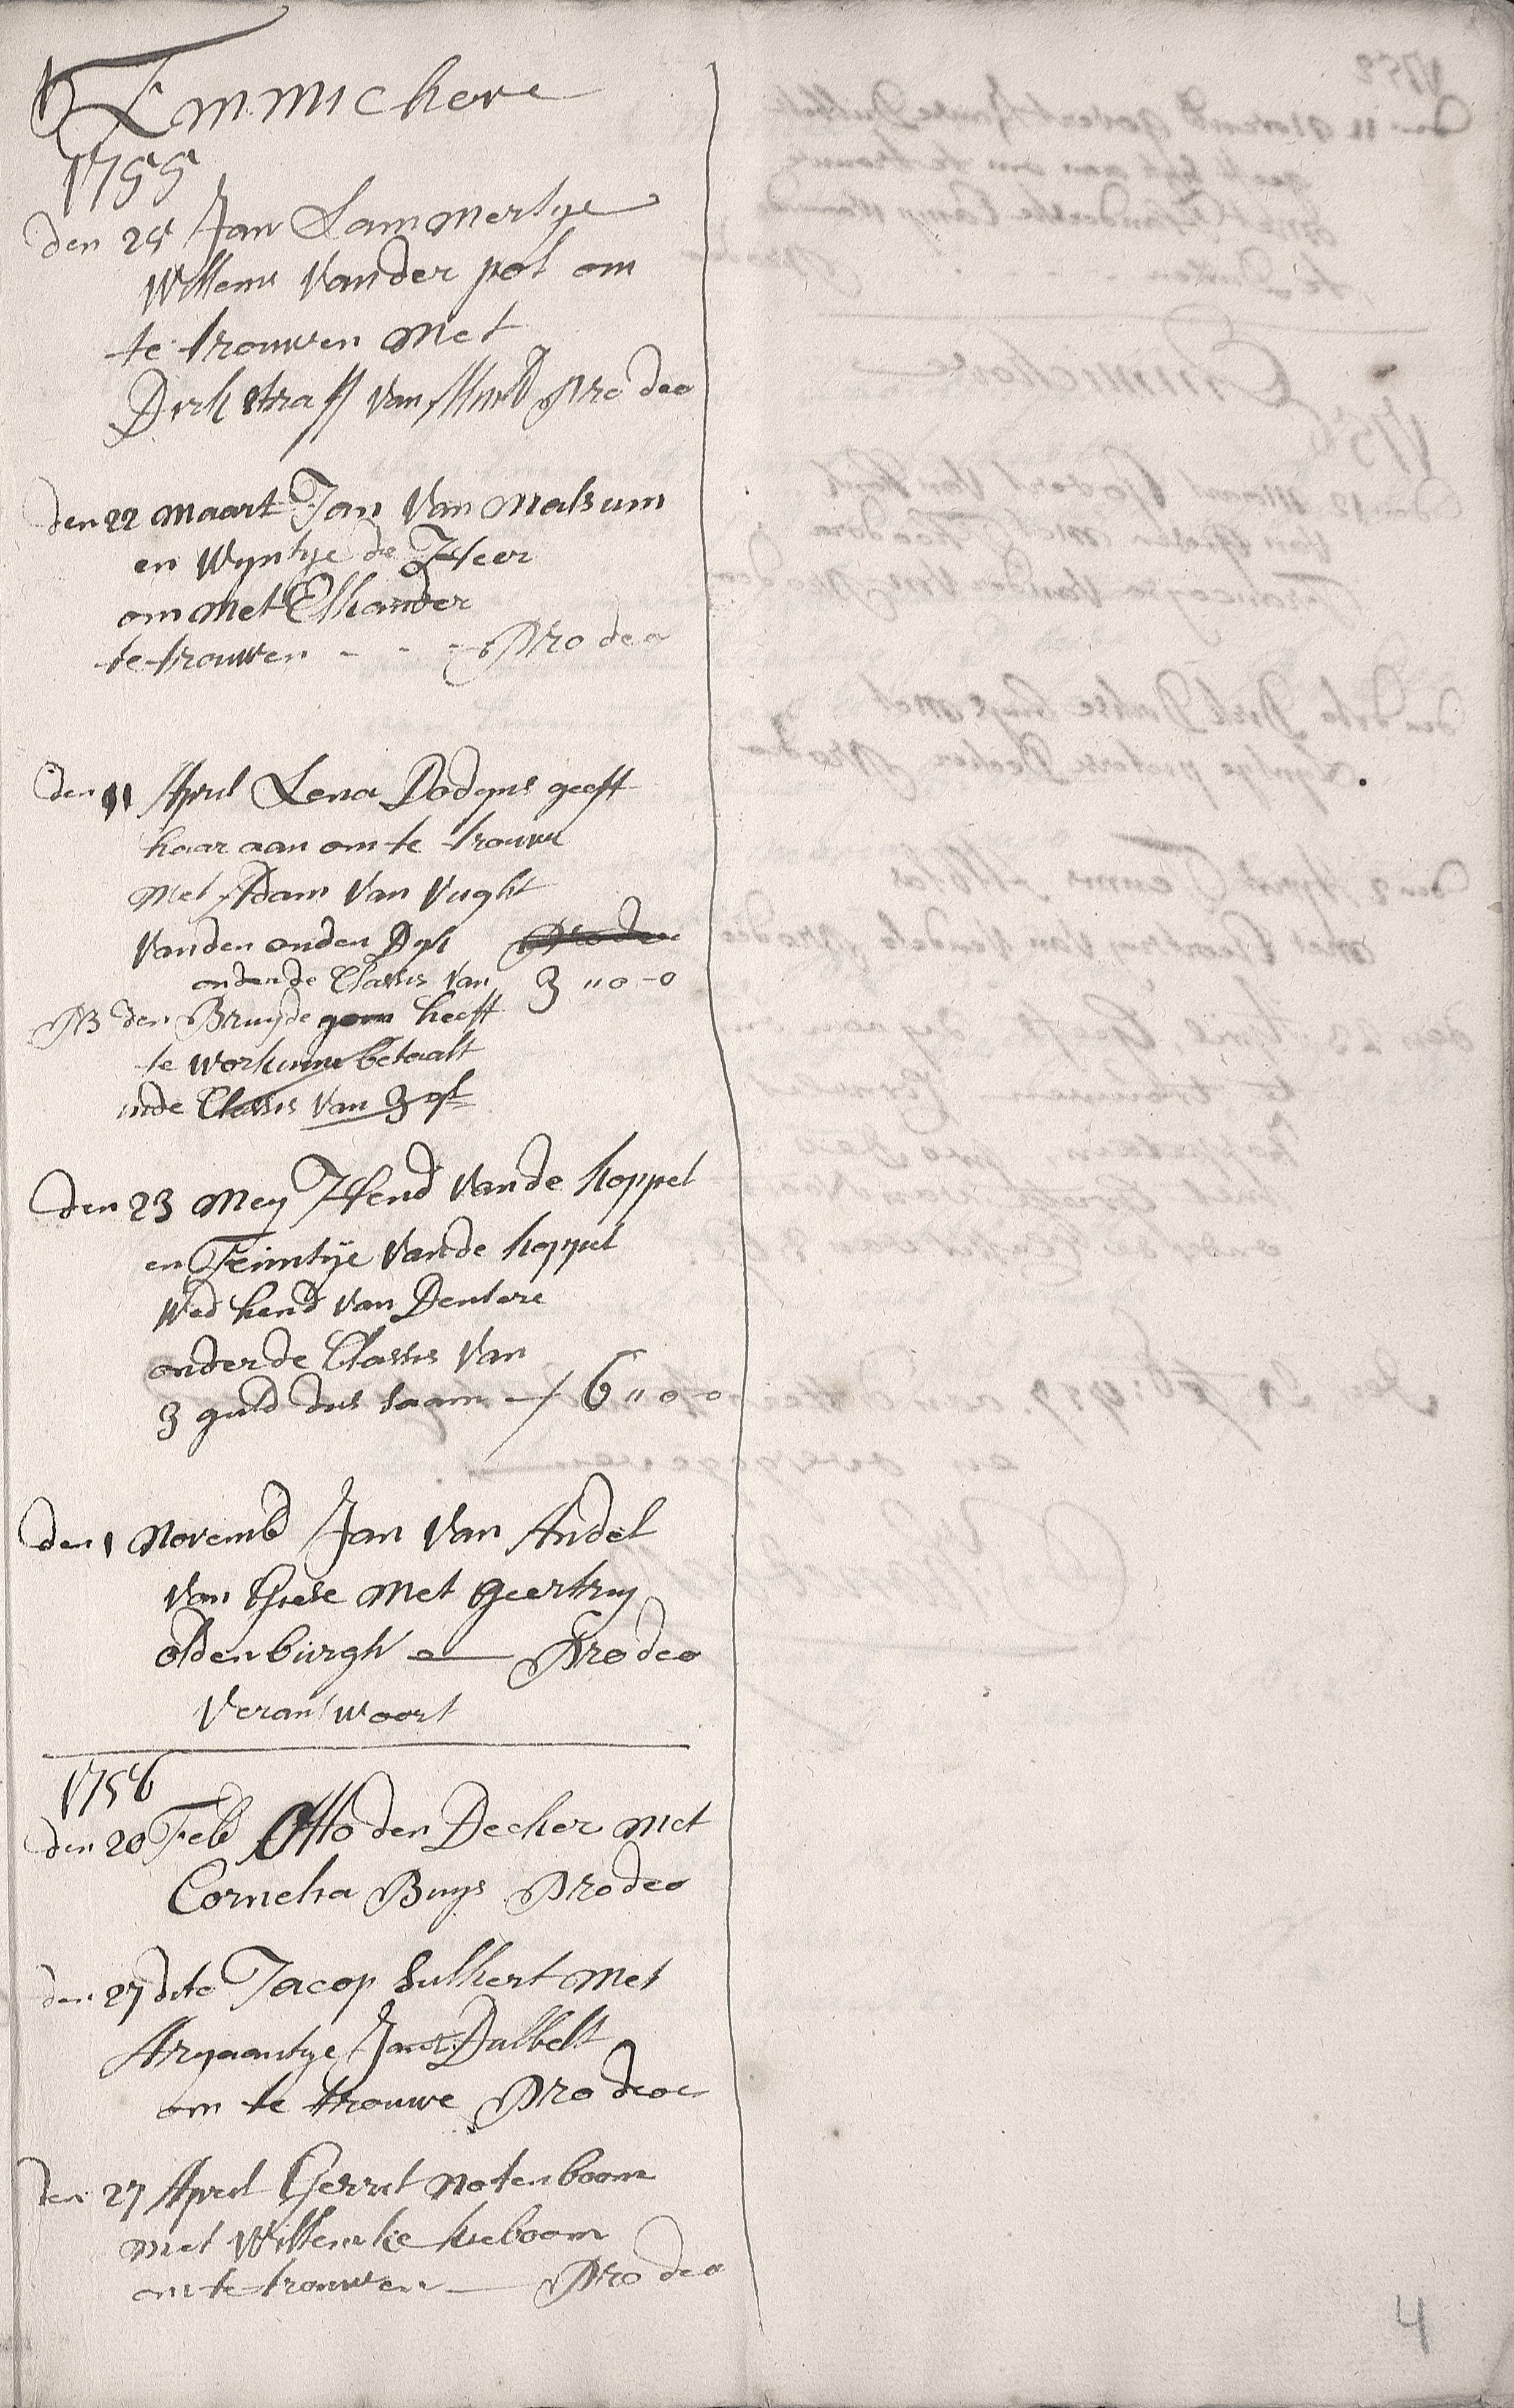 Emmickove
1755
den 25 Jan Lammertye
Willems Vander pol om
te trouwen Met
Dirk Straff van Pro deo
den 22 Maart Jan Van Malsum
en Wyntye de Heer
om Met Elkander
te trouwen - - - Pro deo
den 11 April Lena Dodyns geeft
haar aan om te trouwe
Met Adam Van Vught
Van den ouden Dyk Pro deo
onder de Classis Van 3 "0-0
NB den Bruydegom heeft
te Workum betaalt
inde Classis Van 3 gl
Den 23 Mey Hend Vande koppel
en Teuntye Vande koppel
Wed hend Van Dentere
onder de Classis Van
3 guld dus saam -/ 6 "0-0
den 1 Novemb Jan Van Andel
Van Giese Met Geertruy
oldenburgh - Pro deo
Verantwoort
1756
den 20 Feb Otto den Decker Met
Cornelia Buys Pro deo
den 27 dito Jacop Sulkert Met
Aryaantye Jans Dubbelt
om te trouwe Pro deo
den 27 April Gerrit Notenboom
Met Willemke
om te trouwen - Pro deo
4